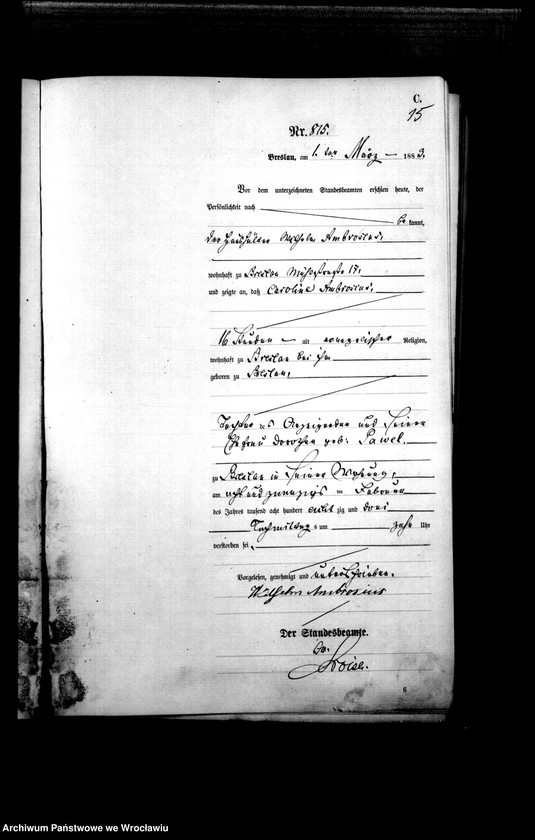 C.
15
Nr. 815.
Breslau, am 1. ten März 1883.
Vor dem unterzeichneten Standesbeamten erschien heute, der
Persönlichkeit nach
be kannt,
der Haushälter Wilhelm Ambrosius,
wohnhaft zu Breslau 17,
und zeigte an, daß Caroline Ambrosius,
16 Stunden alt evangelischer Religion,
wohnhaft zu Breslau bei ihm
geboren zu Breslau,
Tochter des Anzeigenden und seiner
Ehefrau Dorothea geb: Pawel.
zu Breslau in seiner Wohnung,
am acht und zwanzigsten Februar
des Jahres tausend acht hundert acht zig und drei
Nachmittags um zehn Uhr
verstorben sei.
Vorgelesen, genehmigt und unterschrieben.
Wilhelm Ambrosius
Der Standesbeamte.
6
Archiwum Państwowe we Wrocławiu